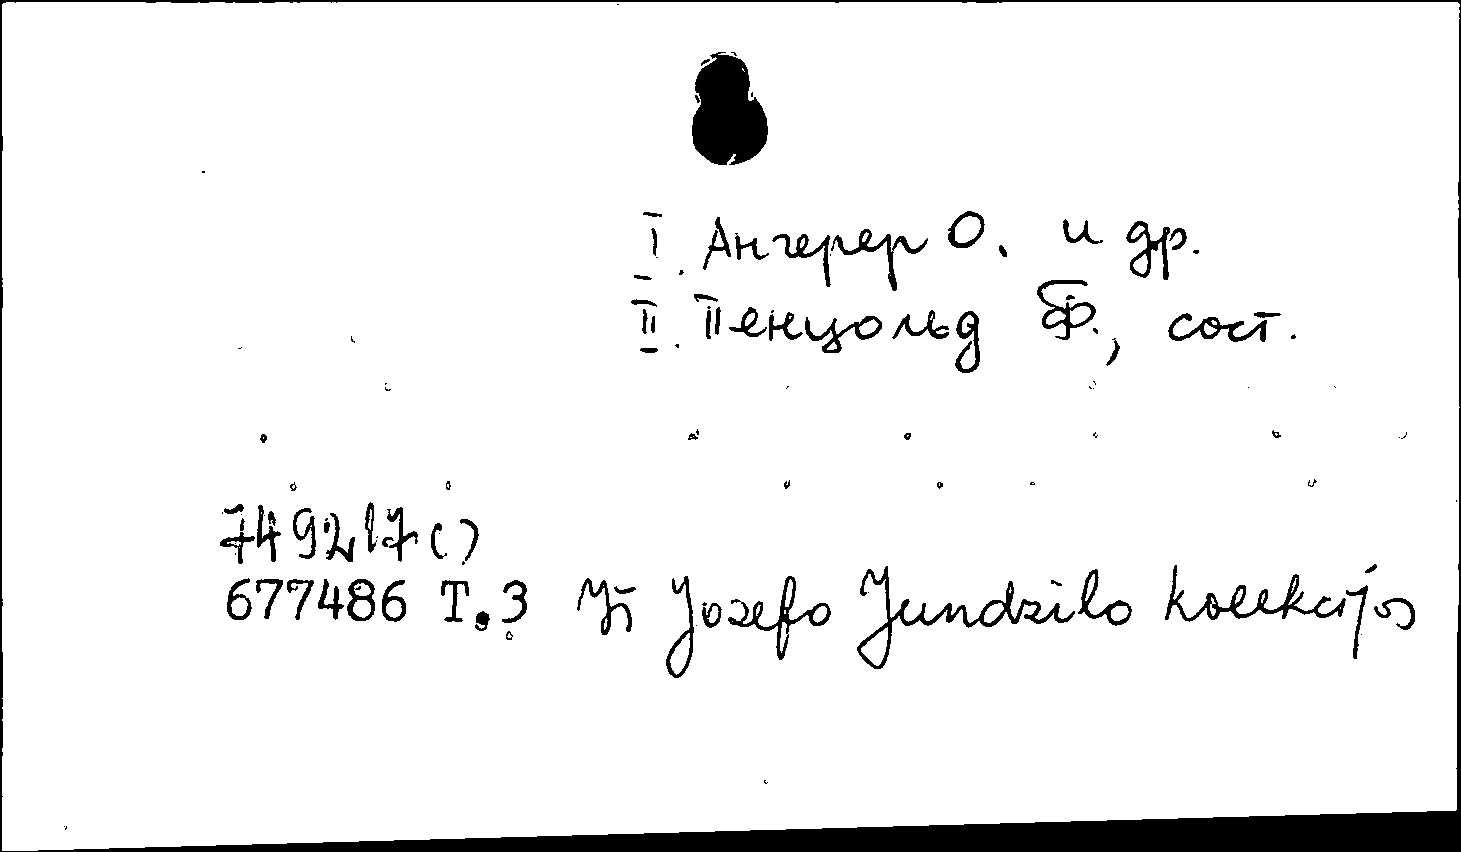 I. Ангерер О. и др.
II. Пенцольд Ф., сост.
749217 ( )
677486 T.3 Iš Jozefo Jundzilo kolekcijos